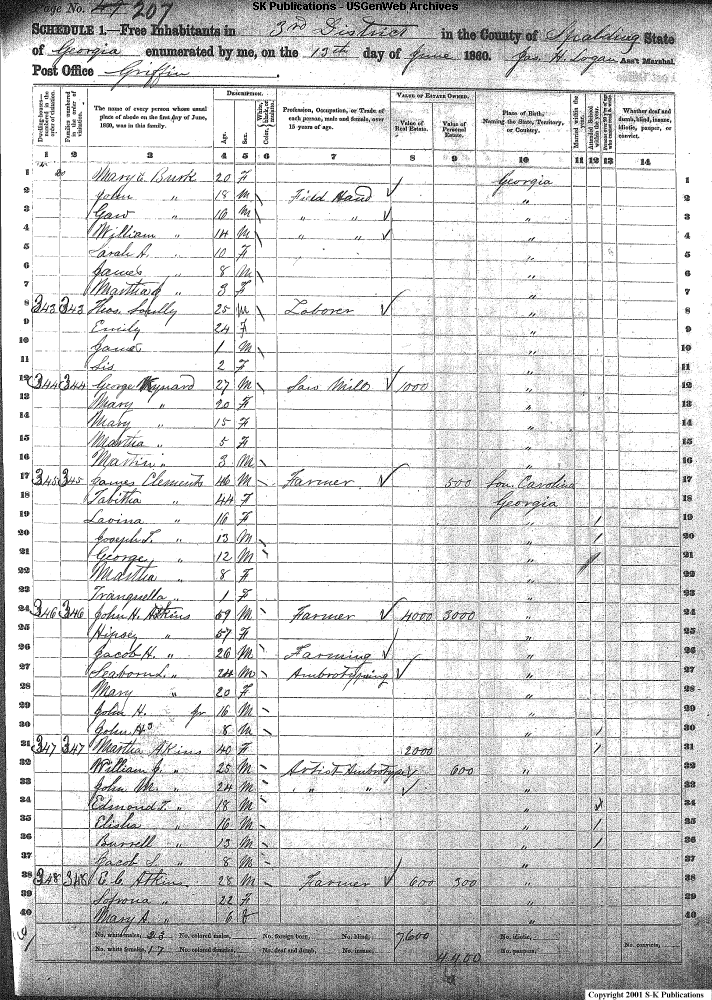 SK Publications - USGenWeb Archives
Page No. 47 207
SCHEDULE 1.—Free Inhabitants in 3rd District in the County of Spalding State
of Georgia enumerated by me, on the 13th day of June 1860. Jas. H. Logan Ass't Marshal.
Post Office Griffin
DESCRIPTION. VALUE OF ESTATE OWNED.
The name of every person whose usual place of abode on the first day of June, 1860, was in this family. Age. Sex. Profession, Occupation, or Trade of each person, male and female, over 15 years of age. Value of Real Estate. Value of Personal Estate. Place of Birth, Naming the State, Territory, or Country. Married within the year. Attended School within the year. Whether deaf and dumb, blind, insane, idiotic, pauper, or convict.
1 2 3 4 5 6 7 8 9 10 11 12 13 14
1 Mary E. Burk 20 F Georgia 1
2 John " 18 M \ Field Hand ✓ " 2
3 " 16 M \ " " ✓ " 3
4 William " 14 M \ " " ✓ " 4
5 Sarah A. " 10 F " 5
6 James " 8 M \ " 6
7 Martha J " 3 F " 7
8 343 343 Thos. Scully 25 M \ Laborer ✓ " 8
9 Emily 24 F " 9
10 James 1 M \ " 10
11 Sis 2 F " 11
12 344 344 George Kynard 27 M \ Saw Mill ✓ 1000 " 12
13 Mary " 20 F " 13
14 Mary " 15 F " 14
15 Martha " 5 F " 15
16 Martin " 3 M " 16
17 345 345 James Clements 46 M Farmer ✓ 500 Sou. Carolina 17
18 Tabitha " 44 F Georgia 18
19 Lavina " 16 F " / 19
20 Joseph T. " 13 M " / 20
21 George " 12 M " / 21
22 Martha " 8 F " 22
23 Tranquella " 1 F " 23
24 346 346 John H. Atkins 59 M Farmer ✓ 4000 3000 " 24
25 Hipsey " 57 F " 25
26 Jacob H. " 26 M Farming ✓ " 26
27 Seaborn L. " 24 M Ambrotyping ✓ " 27
28 Mary " 20 F " 28
29 John H. jr 16 M " 29
30 John H 3 8 M " / 30
31 347 347 Martha Akins 40 F 2000 " / 31
32 William J. " 25 M Artist Ambrotype ✓ 600 " 32
33 John M. " 24 M " " ✓ " 33
34 Edmond T. " 18 M " ✓ 34
35 Elisha " 16 M " / 35
36 Burrell " 13 M " / 36
37 Jacob S. " 8 M " 37
38 348 348 E. C. Atkins 28 M Farmer ✓ 600 300 " 38
39 Sofrona " 22 F " 39
40 Mary A " 6 f " 40
No. white males, 23 No. colored males, No. foreign born, No. blind, 7600 No. idiotic,
No. white females, 17 No. colored females, No. deaf and dumb, No. insane, 4400 No. paupers, No. convicts,
Copyright 2001 S-K Publications